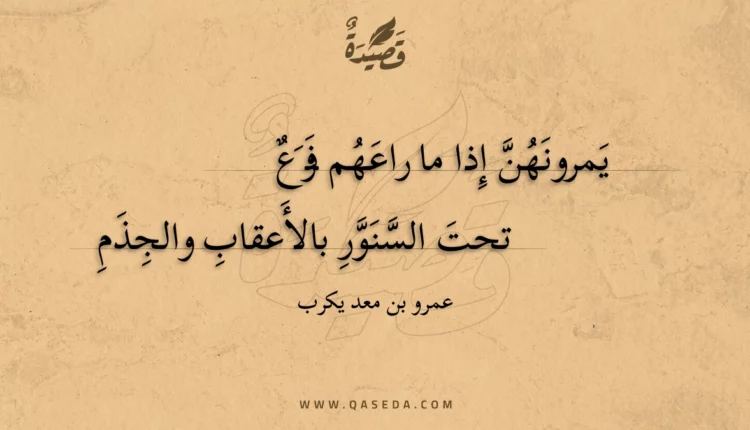 قَصِيدَةٌ
يَمرونَهُنَّ إِذا ما راعَهُم فَزَعٌ
تحتَ السَّنَوَّرِ بالأَعقابِ والجِذَمِ
عمرو بن معد يكرب
WWW.QASEDA.COM